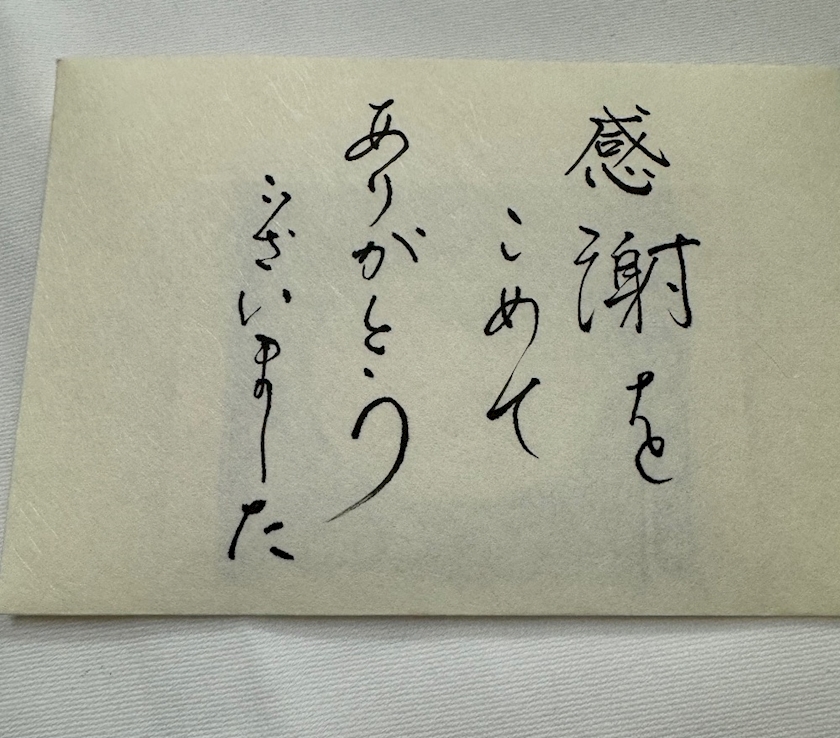 感謝を
こめて
ありがとう
ございました